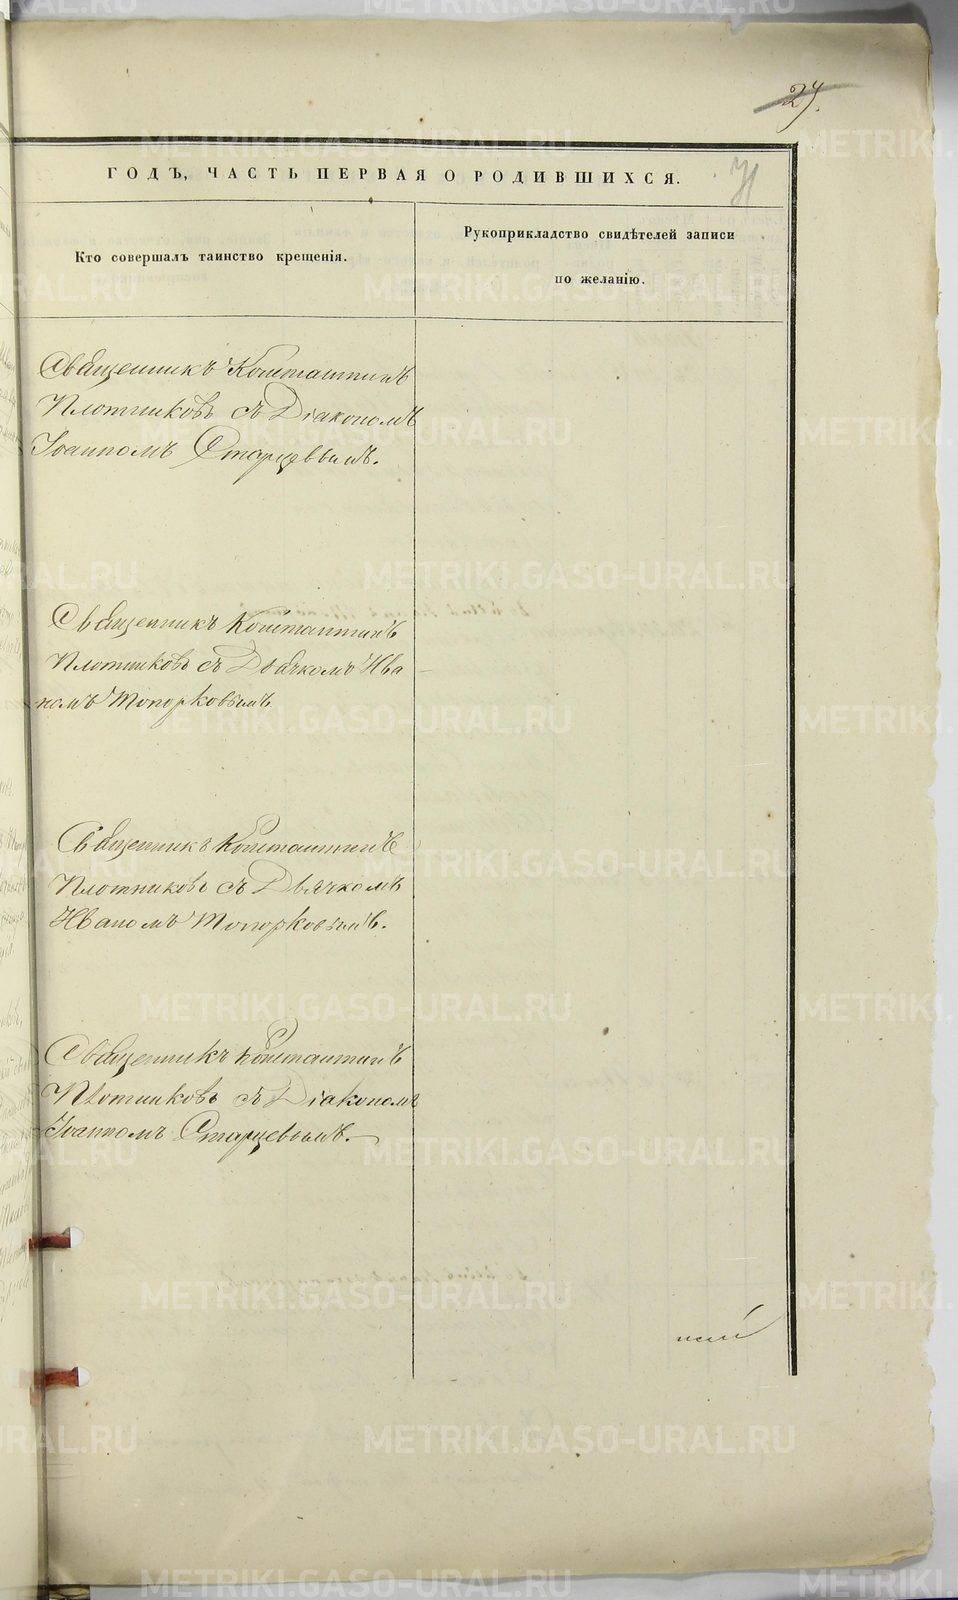 27.
ГОДЪ, ЧАСТЬ ПЕРВАЯ О РОДИВШИХСЯ.
Кто совершалъ таинство крещенія.
Рукоприкладство свидѣтелей записи
по желанію.
Священникъ Константинъ
Плотниковъ съ Діакономъ
Іоанномъ Старцевымъ.
Священникъ Константинъ
Плотниковъ съ Дьячкомъ Ива
номъ Топорковымъ
Священникъ Константинъ
Плотниковъ съ Дьячкомъ
Иваномъ Топорковымъ.
Священникъ Константинъ
Плотниковъ съ Діакономъ
Іоанномъ Старцевымъ.
METRIKI.GASO-URAL.RU